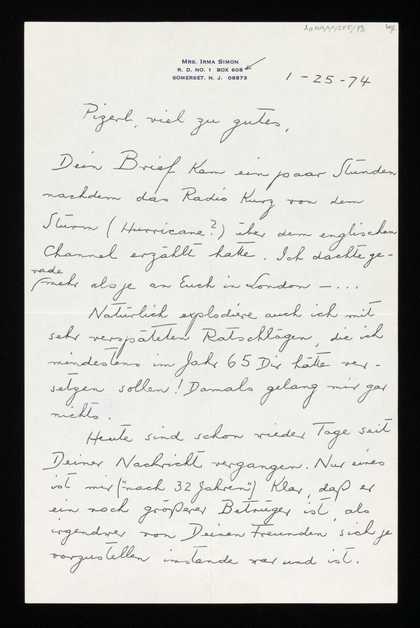 Mrs. Irma Simon
R. D. NO. 1 BOX 608
SOMERSET, N. J. 08873
1-25-74
Pizerl, viel zu gutes,
Dein Brief kam ein paar Stunden
nachdem das Radio kurz von dem
Sturm (Hurricane?) über dem englischen
Channel erzählt hatte. Ich dachte ge-
rade
mehr als je an Euch in London – ...
Natürlich explodiere auch ich mit
sehr verspäteten Ratschlägen, die ich
mindestens im Jahr 65 Dir hätte ver-
setzen sollen! Damals gelang mir gar
nichts.
Heute sind schon wieder Tage seit
Deiner Nachricht vergangen. Nur eines
ist mir ("nach 32 Jahren") klar, daß er
ein noch größerer Betrüger ist, als
irgendwer von Deinen Freunden sich je
vorzustellen imstande war und ist.